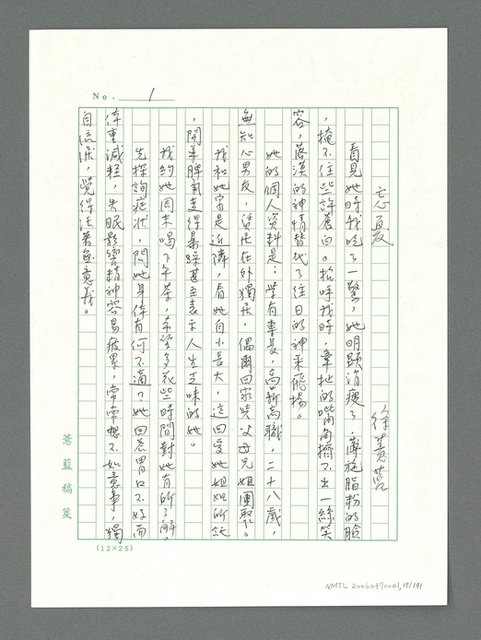 No. 1
忘憂
徐菁蓉
看見她時我吃了一驚，她明顯消瘦了，薄施脂粉的臉
，掩不住些許蒼白。招呼我時，牽扯的嘴角擠不出一絲笑
容，落漠的神情替代了往日的神采飛揚。
她的個人資料是：學有專長，高薪高職，二十八歲，
無知心男友，賃居在外獨居，偶爾回家與父母兄姐團聚。
我和她家是近隣，看她自小長大，這回受她姐姐所託
，開導脾氣變得暴躁甚至表示人生乏味的她。
我約她周末喝下午茶，希望多花些時間對她有所了解。
先探詢症狀，問她身体有何不適？她回答胃口不好而
体重減輕，失眠影響精神容易疲累，常常想不如意事，獨
自流淚，覺得活著無意義。
薔藍稿箋
(12×25)
NMTL 20060370001,19/191